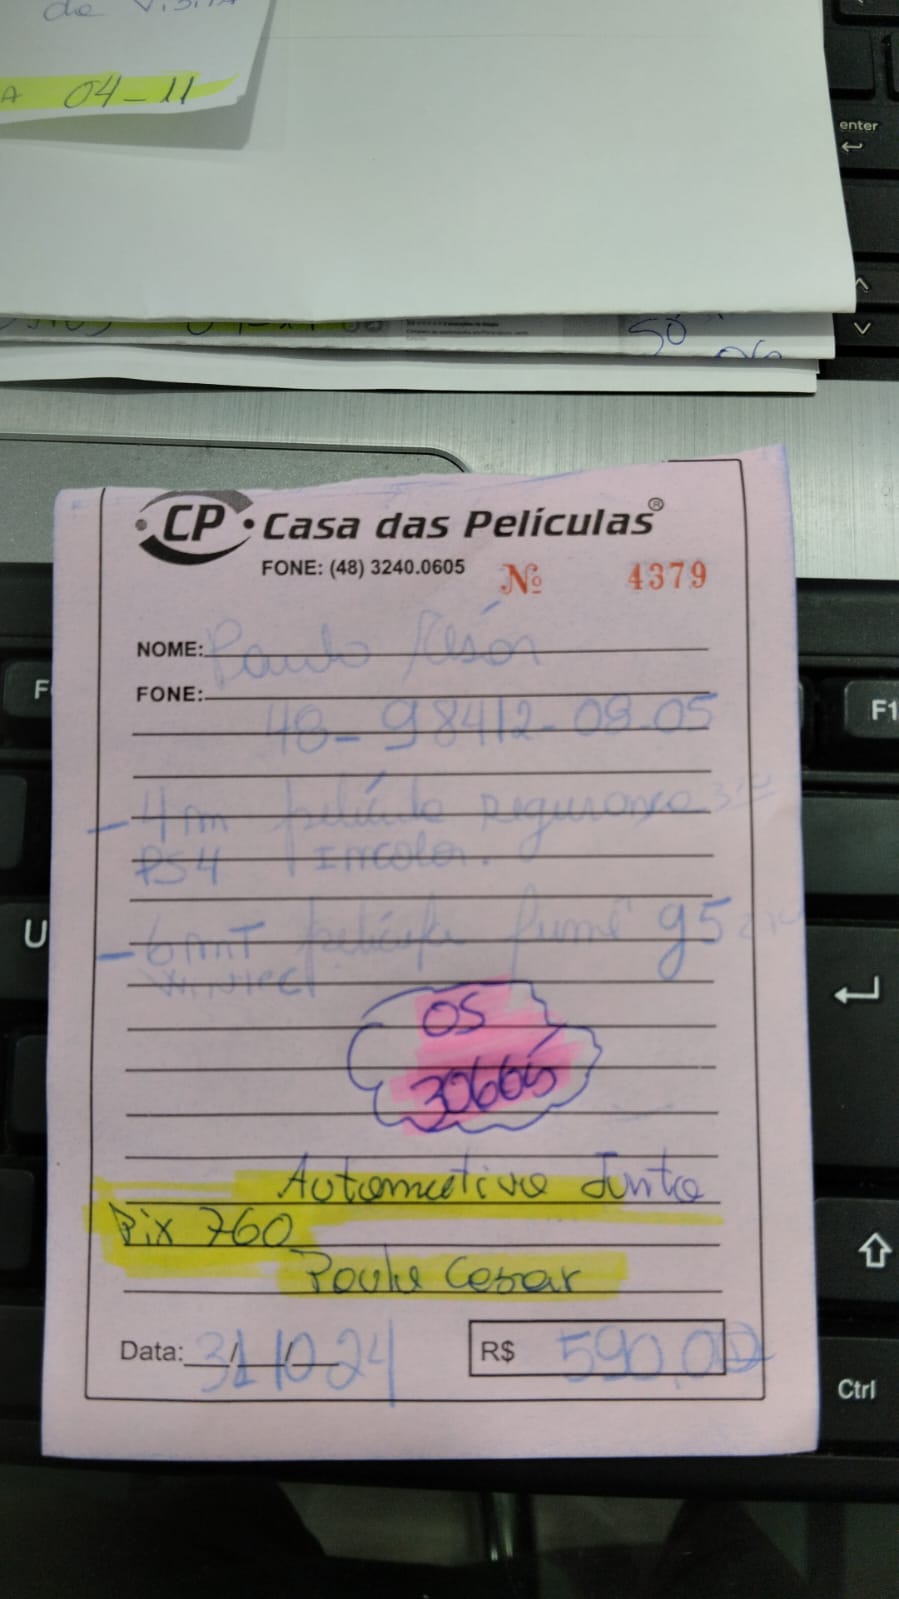 de Visita
A 04-11
50
enter
CP Casa das Películas®
FONE: (48) 3240.0605
Nº 4379
NOME: Paulo Césár
FONE:
48-98412-08-05
- 4m película segurança
PS4 Incolor.
- 6mt película fumê g5
wintec
OS
30665
Automotivo Junto
Pix 760
Paulo Cesar
Data: 31/10/24 R$ 590,00
F
F1
U
Ctrl